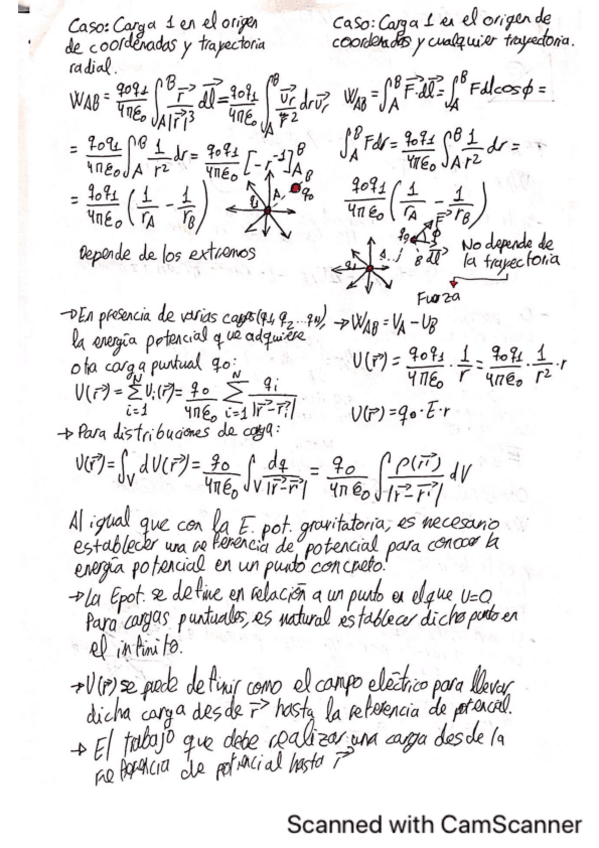 Caso: Carga 1 en el origen
de coordenadas y trayectoria
radial.
W_AB = q0q1/4πε0 ∫_A^B r⃗/|r⃗|³ dl⃗ = q0q1/4πε0 ∫_A^B v⃗r/r² dr v⃗r
= q0q1/4πε0 ∫_A^B 1/r² dr = q0q1/4πε0 [-r⁻¹]_A^B
= q0q1/4πε0 (1/rA - 1/rB)
q1 A B q0
Depende de los extremos
Caso: Carga 1 en el origen de
coordenadas y cualquier trayectoria.
W_AB = ∫_A^B F⃗·dl⃗ = ∫_A^B F dl cosϕ =
∫_A^B F dr = q0q1/4πε0 ∫_A^B 1/r² dr =
q0q1/4πε0 (1/rA - 1/rB)
q0 F⃗ ϕ
q1 A B dl⃗
No depende de
la trayectoria
Fuerza
→ En presencia de varias cargas (q1, q2 ... qN),
la energía potencial que adquiere
otra carga puntual q0:
U(r⃗) = Σ_{i=1}^N Ui(r⃗) = q0/4πε0 Σ_{i=1}^N qi/|r⃗-r⃗i|
→ W_AB = V_A - U_B
U(r⃗) = q0q1/4πε0 · 1/r = q0q1/4πε0 · 1/r² · r
U(r⃗) = q0 · E · r
→ Para distribuciones de carga:
U(r⃗) = ∫_V dU(r⃗) = q0/4πε0 ∫_V dq/|r⃗-r⃗'| = q0/4πε0 ∫ ρ(r⃗')/|r⃗-r⃗'| dV
Al igual que con la E. pot. gravitatoria, es necesario
establecer una referencia de potencial para conocer la
energía potencial en un punto concreto.
→ La Epot. se define en relación a un punto en el que U=0
Para cargas puntuales, es natural establecer dicho punto en
el infinito.
→ U(r⃗) se puede definir como el campo eléctrico para llevar
dicha carga desde r⃗ hasta la referencia de potencial.
→ El trabajo que debe realizar una carga desde la
referencia de potencial hasta r⃗
Scanned with CamScanner